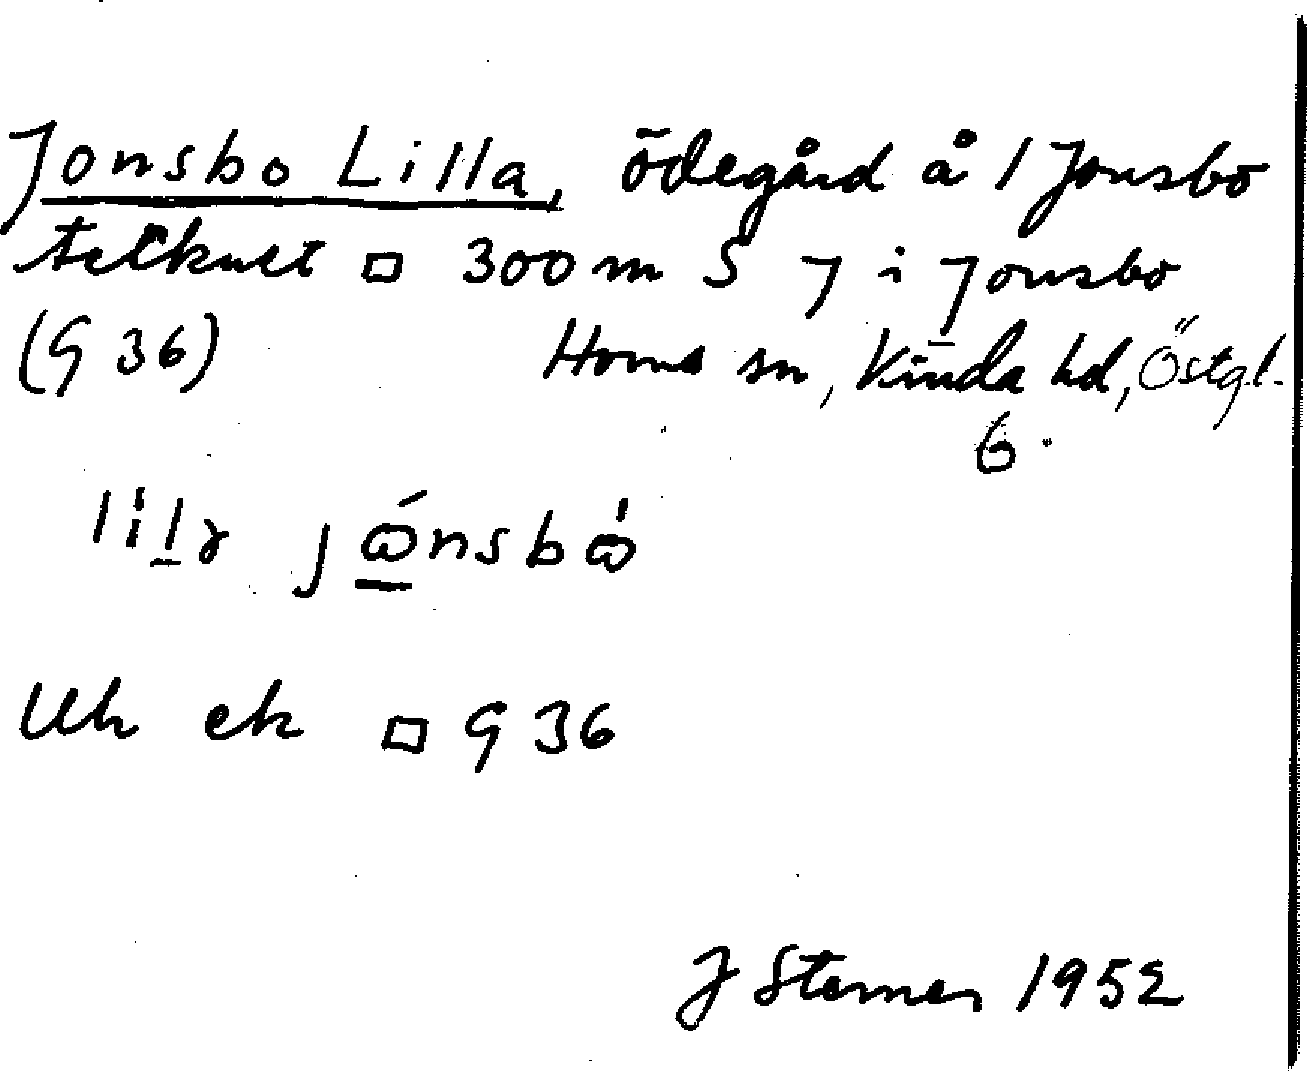 Jonsbo Lilla, ödegård å 1 Jonsbo
tecknet □ 300 m S J i Jonsbo
(G 36) Horns sn, Kinda hd, Östgl.
6.
jónsbó
Uk ek □ G 36
J Sterner 1952